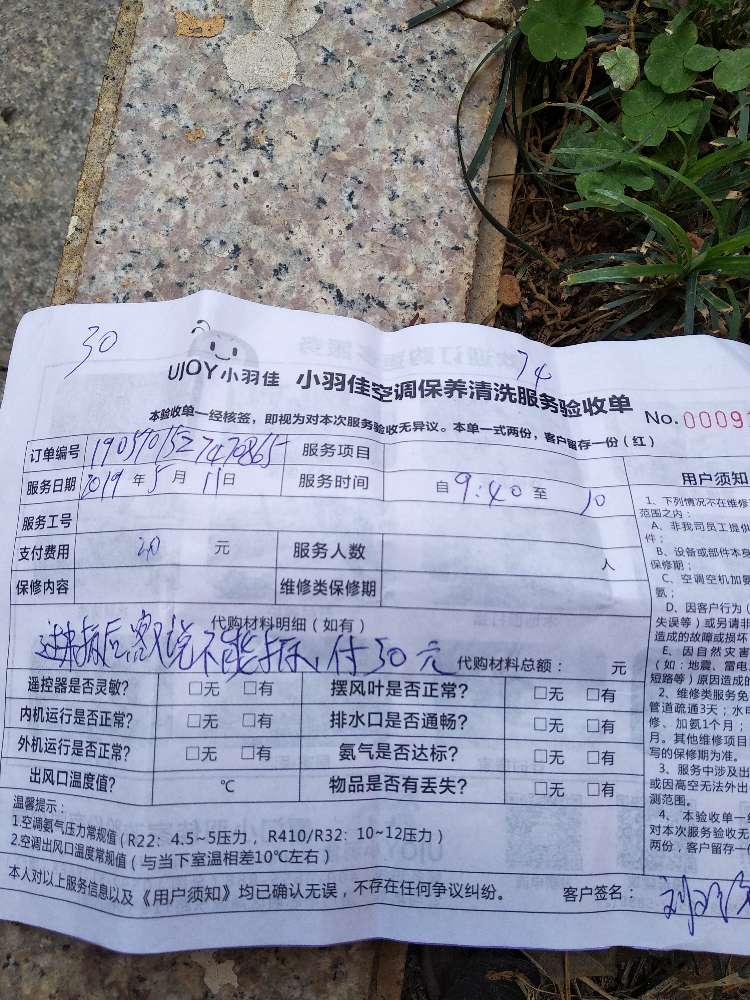 30
74
UJOY小羽佳 小羽佳空调保养清洗服务验收单
No. 00091
本验收单一经核签，即视为对本次服务验收无异议。本单一式两份，客户留存一份（红）
订单编号 服务项目
服务日期 2019 年 5 月 11 日 服务时间 自 9:40 至 10
服务工号
支付费用 元 服务人数 人
保修内容 维修类保修期
代购材料明细（如有）
后客人说不能拆，付30元 代购材料总额： 元
遥控器是否灵敏? □无 □有 摆风叶是否正常? □无 □有
内机运行是否正常? □无 □有 排水口是否通畅? □无 □有
外机运行是否正常? □无 □有 氨气是否达标? □无 □有
出风口温度值? ℃ 物品是否有丢失? □无 □有
温馨提示：
1.空调氨气压力常规值（R22：4.5~5压力，R410/R32：10~12压力）
2.空调出风口温度常规值（与当下室温相差10℃左右）
本人对以上服务信息以及《用户须知》均已确认无误，不存在任何争议纠纷。 客户签名：
用户须知
1、下列情况不在维修
范围之内：
A、非我司员工提供
件；
B、设备或部件本身
保修期；
C、空调空机加氨
氨；
D、因客户行为（
失误等）或另请非
造成的故障或损坏
E、因自然灾害
（如：地震、雷电、
短路等）原因造成的
2、维修类服务免
管道疏通3天；水电
修、加氨1个月；
月。其他维修项目
写的保修期为准。
3、服务中涉及出
或因高空无法外出
测范围。
4、本验收单一经
对本次服务验收无
两份，客户留存一份